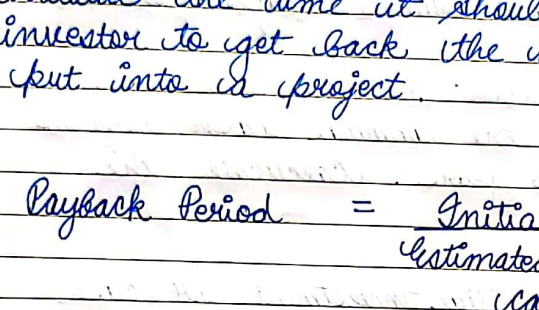 the time it shoul
investor to get back the
put into a project.
Payback Period = Initia
Estimate
ca